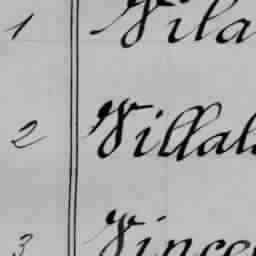 1 Vila
2 Villal
3 Vince